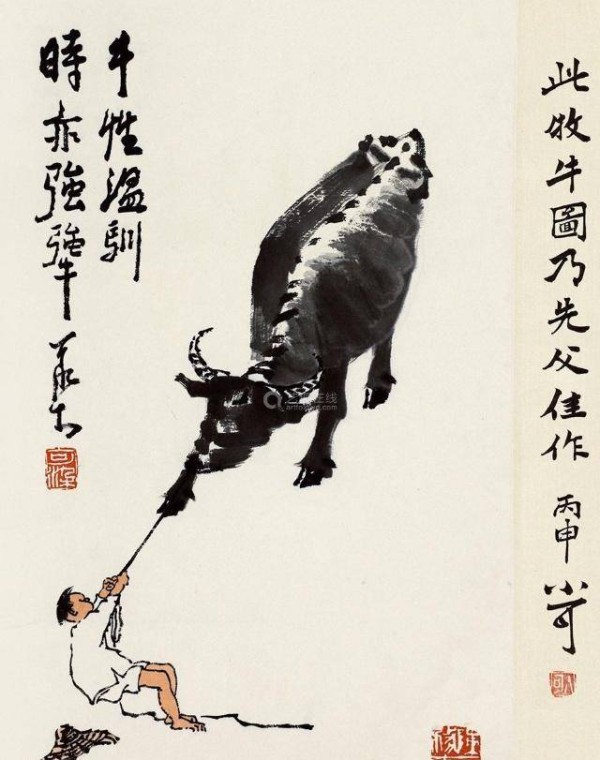 此牧牛圖乃先父佳作
丙申 小可
牛性溫馴
時亦強犟